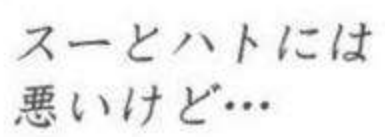 スーとハトには
悪いけど…